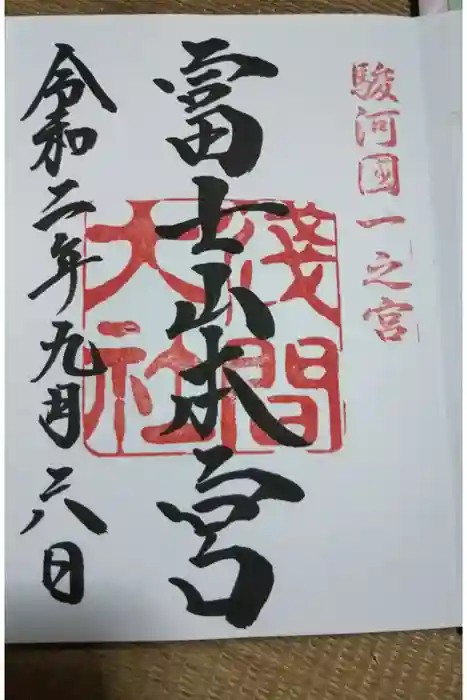 駿河國一之宮
富士山本宮
淺間
大社
令和二年九月六日